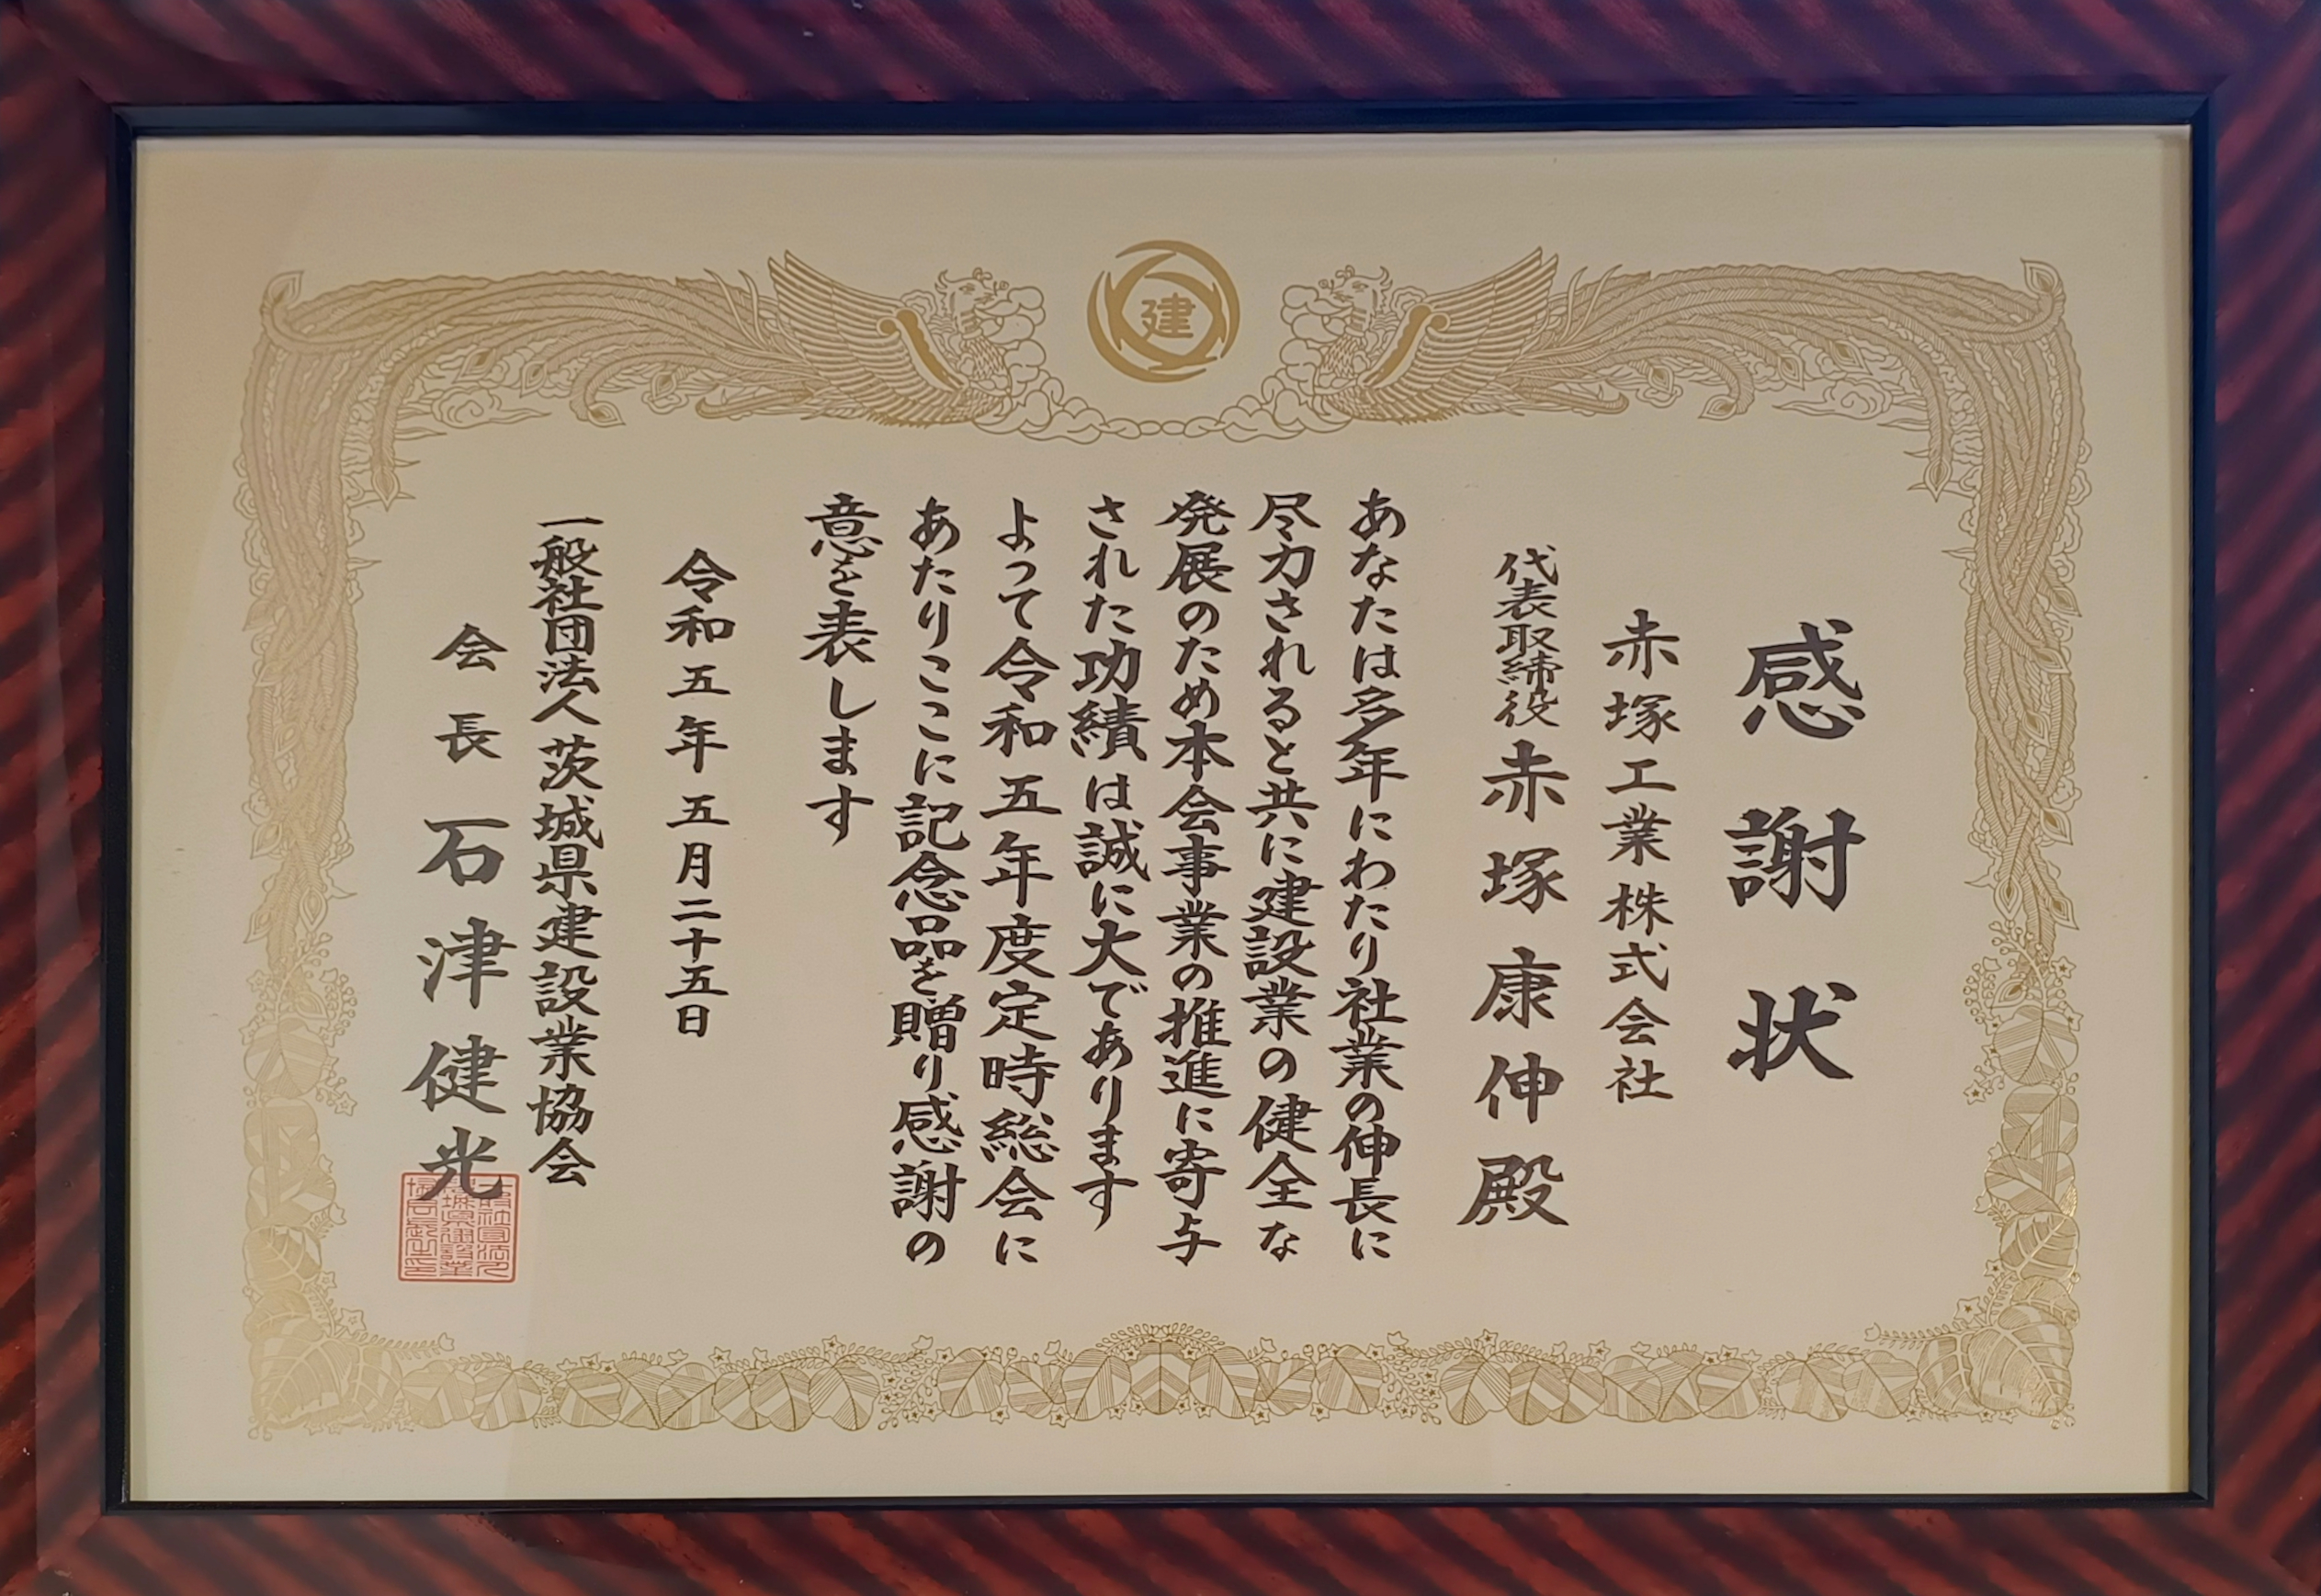 建
感謝状
赤塚工業株式会社
代表取締役 赤塚康伸殿
あなたは多年にわたり社業の伸長に
尽力されると共に建設業の健全な
発展のため本会事業の推進に寄与
された功績は誠に大であります
よって令和五年度定時総会に
あたりここに記念品を贈り感謝の
意を表します
令和五年五月二十五日
一般社団法人茨城県建設業協会
会長 石津健光